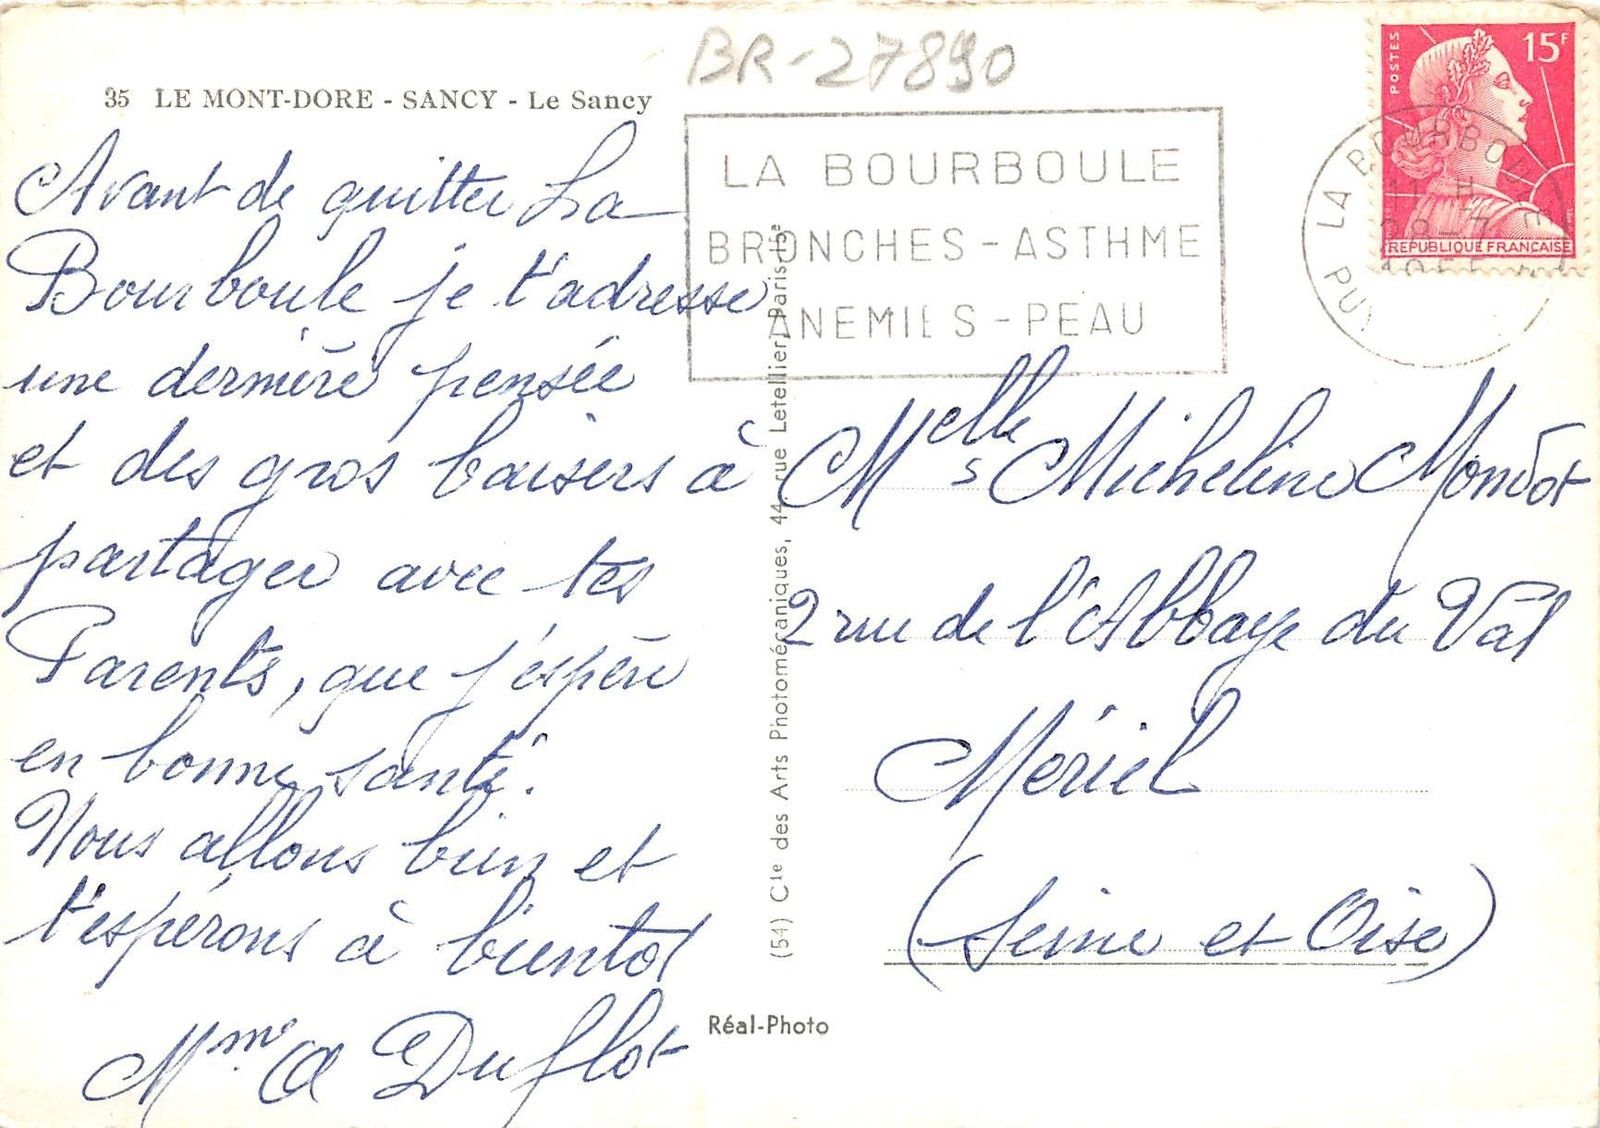 BR-27890
35 LE MONT-DORE - SANCY - Le Sancy
Avant de quitter La
Bourboule je t'adresse
une dernière pensée
et des gros baisers à
partager avec tes
Parents, que j'espère
en bonne santé.
Nous allons bien et
t'espérons à bientot
Mme A Duflot
LA BOURBOULE
BRONCHES - ASTHME
ANEMIES - PEAU
POSTES
15F
REPUBLIQUE FRANÇAISE
LA BOURBOULE
11 H
28-7
PUY
(54) Cie des Arts Photomécaniques, 44, rue Letellier, Paris-15e
Melle s Micheline Mondot
2 rue de l'Abbaye du Val
Mériel
(Seine et Oise)
Réal-Photo